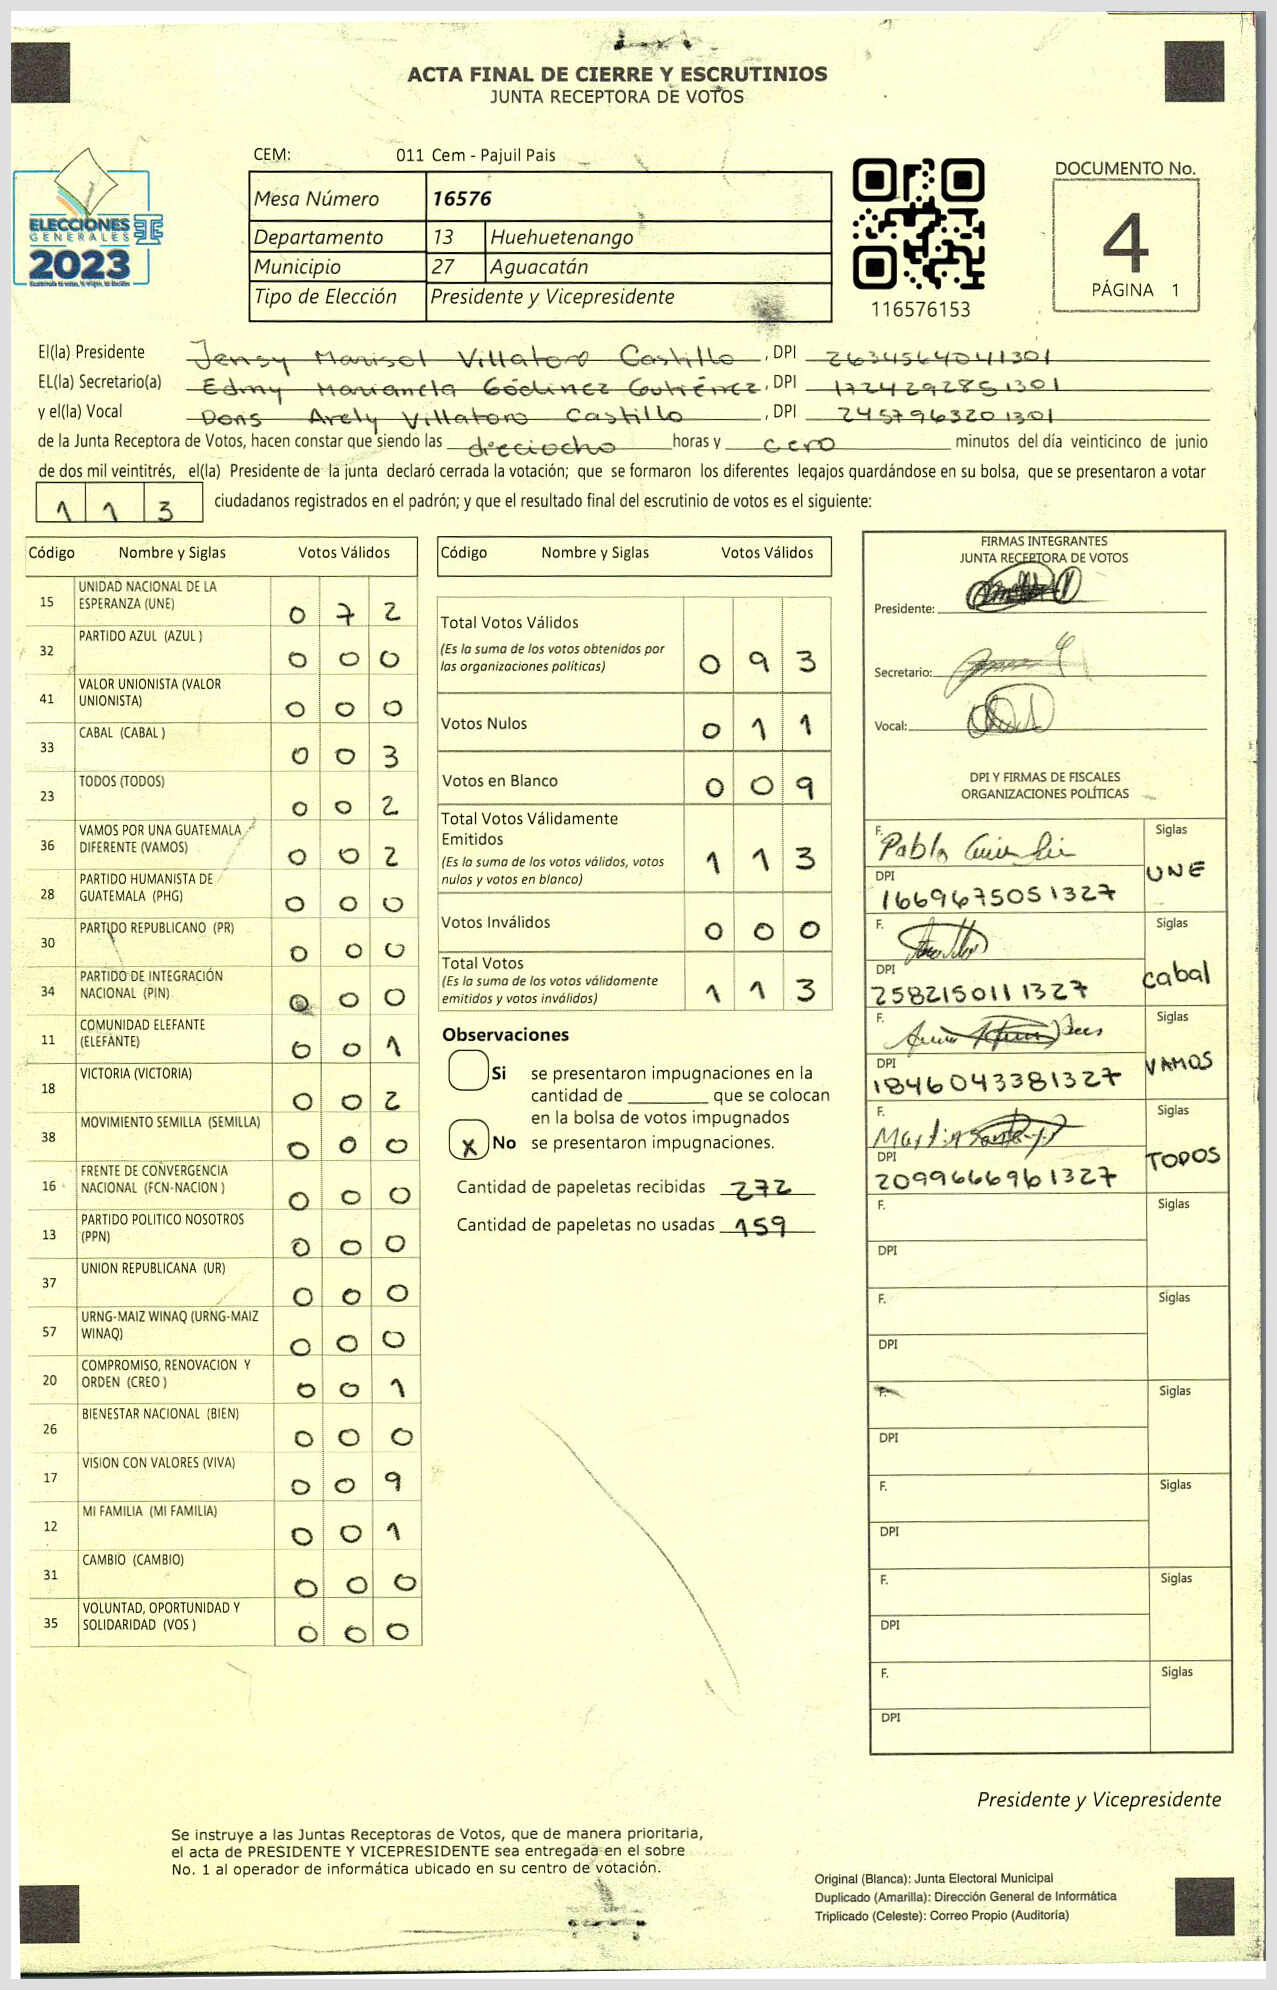 ACTA FINAL DE CIERRE Y ESCRUTINIOS
JUNTA RECEPTORA DE VOTOS
CEM: 011 Cem - Pajuil Pais
ELECCIONES
GENERALES
2023
Mesa Número 16576
Departamento 13 Huehuetenango
Municipio 27 Aguacatán
Tipo de Elección Presidente y Vicepresidente
116576153
DOCUMENTO No.
4
PÁGINA 1
El(la) Presidente Jensy Marisol Villatoro Castillo, DPI 2634564041301
EL(la) Secretario(a) Edmy Marianela Gódinez Gutiérrez, DPI 1724292851301
y el(la) Vocal Doris Arely Villatoro Castillo, DPI 2457963201301
de la Junta Receptora de Votos, hacen constar que siendo las dieciocho horas y cero minutos del día veinticinco de junio
de dos mil veintitrés, el(la) Presidente de la junta declaró cerrada la votación; que se formaron los diferentes legajos quardándose en su bolsa, que se presentaron a votar
113 ciudadanos registrados en el padrón; y que el resultado final del escrutinio de votos es el siguiente:
Código Nombre y Siglas Votos Válidos
15 UNIDAD NACIONAL DE LA ESPERANZA (UNE) 072
32 PARTIDO AZUL (AZUL ) 000
41 VALOR UNIONISTA (VALOR UNIONISTA) 000
33 CABAL (CABAL ) 003
23 TODOS (TODOS) 002
36 VAMOS POR UNA GUATEMALA DIFERENTE (VAMOS) 002
28 PARTIDO HUMANISTA DE GUATEMALA (PHG) 000
30 PARTIDO REPUBLICANO (PR) 000
34 PARTIDO DE INTEGRACIÓN NACIONAL (PIN) 000
11 COMUNIDAD ELEFANTE (ELEFANTE) 001
18 VICTORIA (VICTORIA) 002
38 MOVIMIENTO SEMILLA (SEMILLA) 000
16 FRENTE DE CONVERGENCIA NACIONAL (FCN-NACION ) 000
13 PARTIDO POLITICO NOSOTROS (PPN) 000
37 UNION REPUBLICANA (UR) 000
57 URNG-MAIZ WINAQ (URNG-MAIZ WINAQ) 000
20 COMPROMISO, RENOVACION Y ORDEN (CREO ) 001
26 BIENESTAR NACIONAL (BIEN) 000
17 VISION CON VALORES (VIVA) 009
12 MI FAMILIA (MI FAMILIA) 001
31 CAMBIO (CAMBIO) 000
35 VOLUNTAD, OPORTUNIDAD Y SOLIDARIDAD (VOS ) 000
Código Nombre y Siglas Votos Válidos
Total Votos Válidos 093
(Es la suma de los votos obtenidos por
las organizaciones políticas)
Votos Nulos 011
Votos en Blanco 009
Total Votos Válidamente
Emitidos 113
(Es la suma de los votos válidos, votos
nulos y votos en blanco)
Votos Inválidos 000
Total Votos 113
(Es la suma de los votos válidamente
emitidos y votos inválidos)
Observaciones
Si se presentaron impugnaciones en la
cantidad de ________ que se colocan
en la bolsa de votos impugnados
X No se presentaron impugnaciones.
Cantidad de papeletas recibidas 272
Cantidad de papeletas no usadas 159
FIRMAS INTEGRANTES
JUNTA RECEPTORA DE VOTOS
Presidente:
Secretario:
Vocal:
DPI Y FIRMAS DE FISCALES
ORGANIZACIONES POLÍTICAS
F. Pablo Siglas
DPI 1669675051327 UNE
F. Siglas
DPI 2582150111327 Cabal
F. Siglas
DPI 1846043381327 VAMOS
F. Siglas
DPI 2099666961327 TODOS
F. Siglas
DPI
F. Siglas
DPI
F. Siglas
DPI
F. Siglas
DPI
F. Siglas
DPI
F. Siglas
DPI
Presidente y Vicepresidente
Se instruye a las Juntas Receptoras de Votos, que de manera prioritaria,
el acta de PRESIDENTE Y VICEPRESIDENTE sea entregada en el sobre
No. 1 al operador de informática ubicado en su centro de votación.
Original (Blanca): Junta Electoral Municipal
Duplicado (Amarilla): Dirección General de Informática
Triplicado (Celeste): Correo Propio (Auditoría)